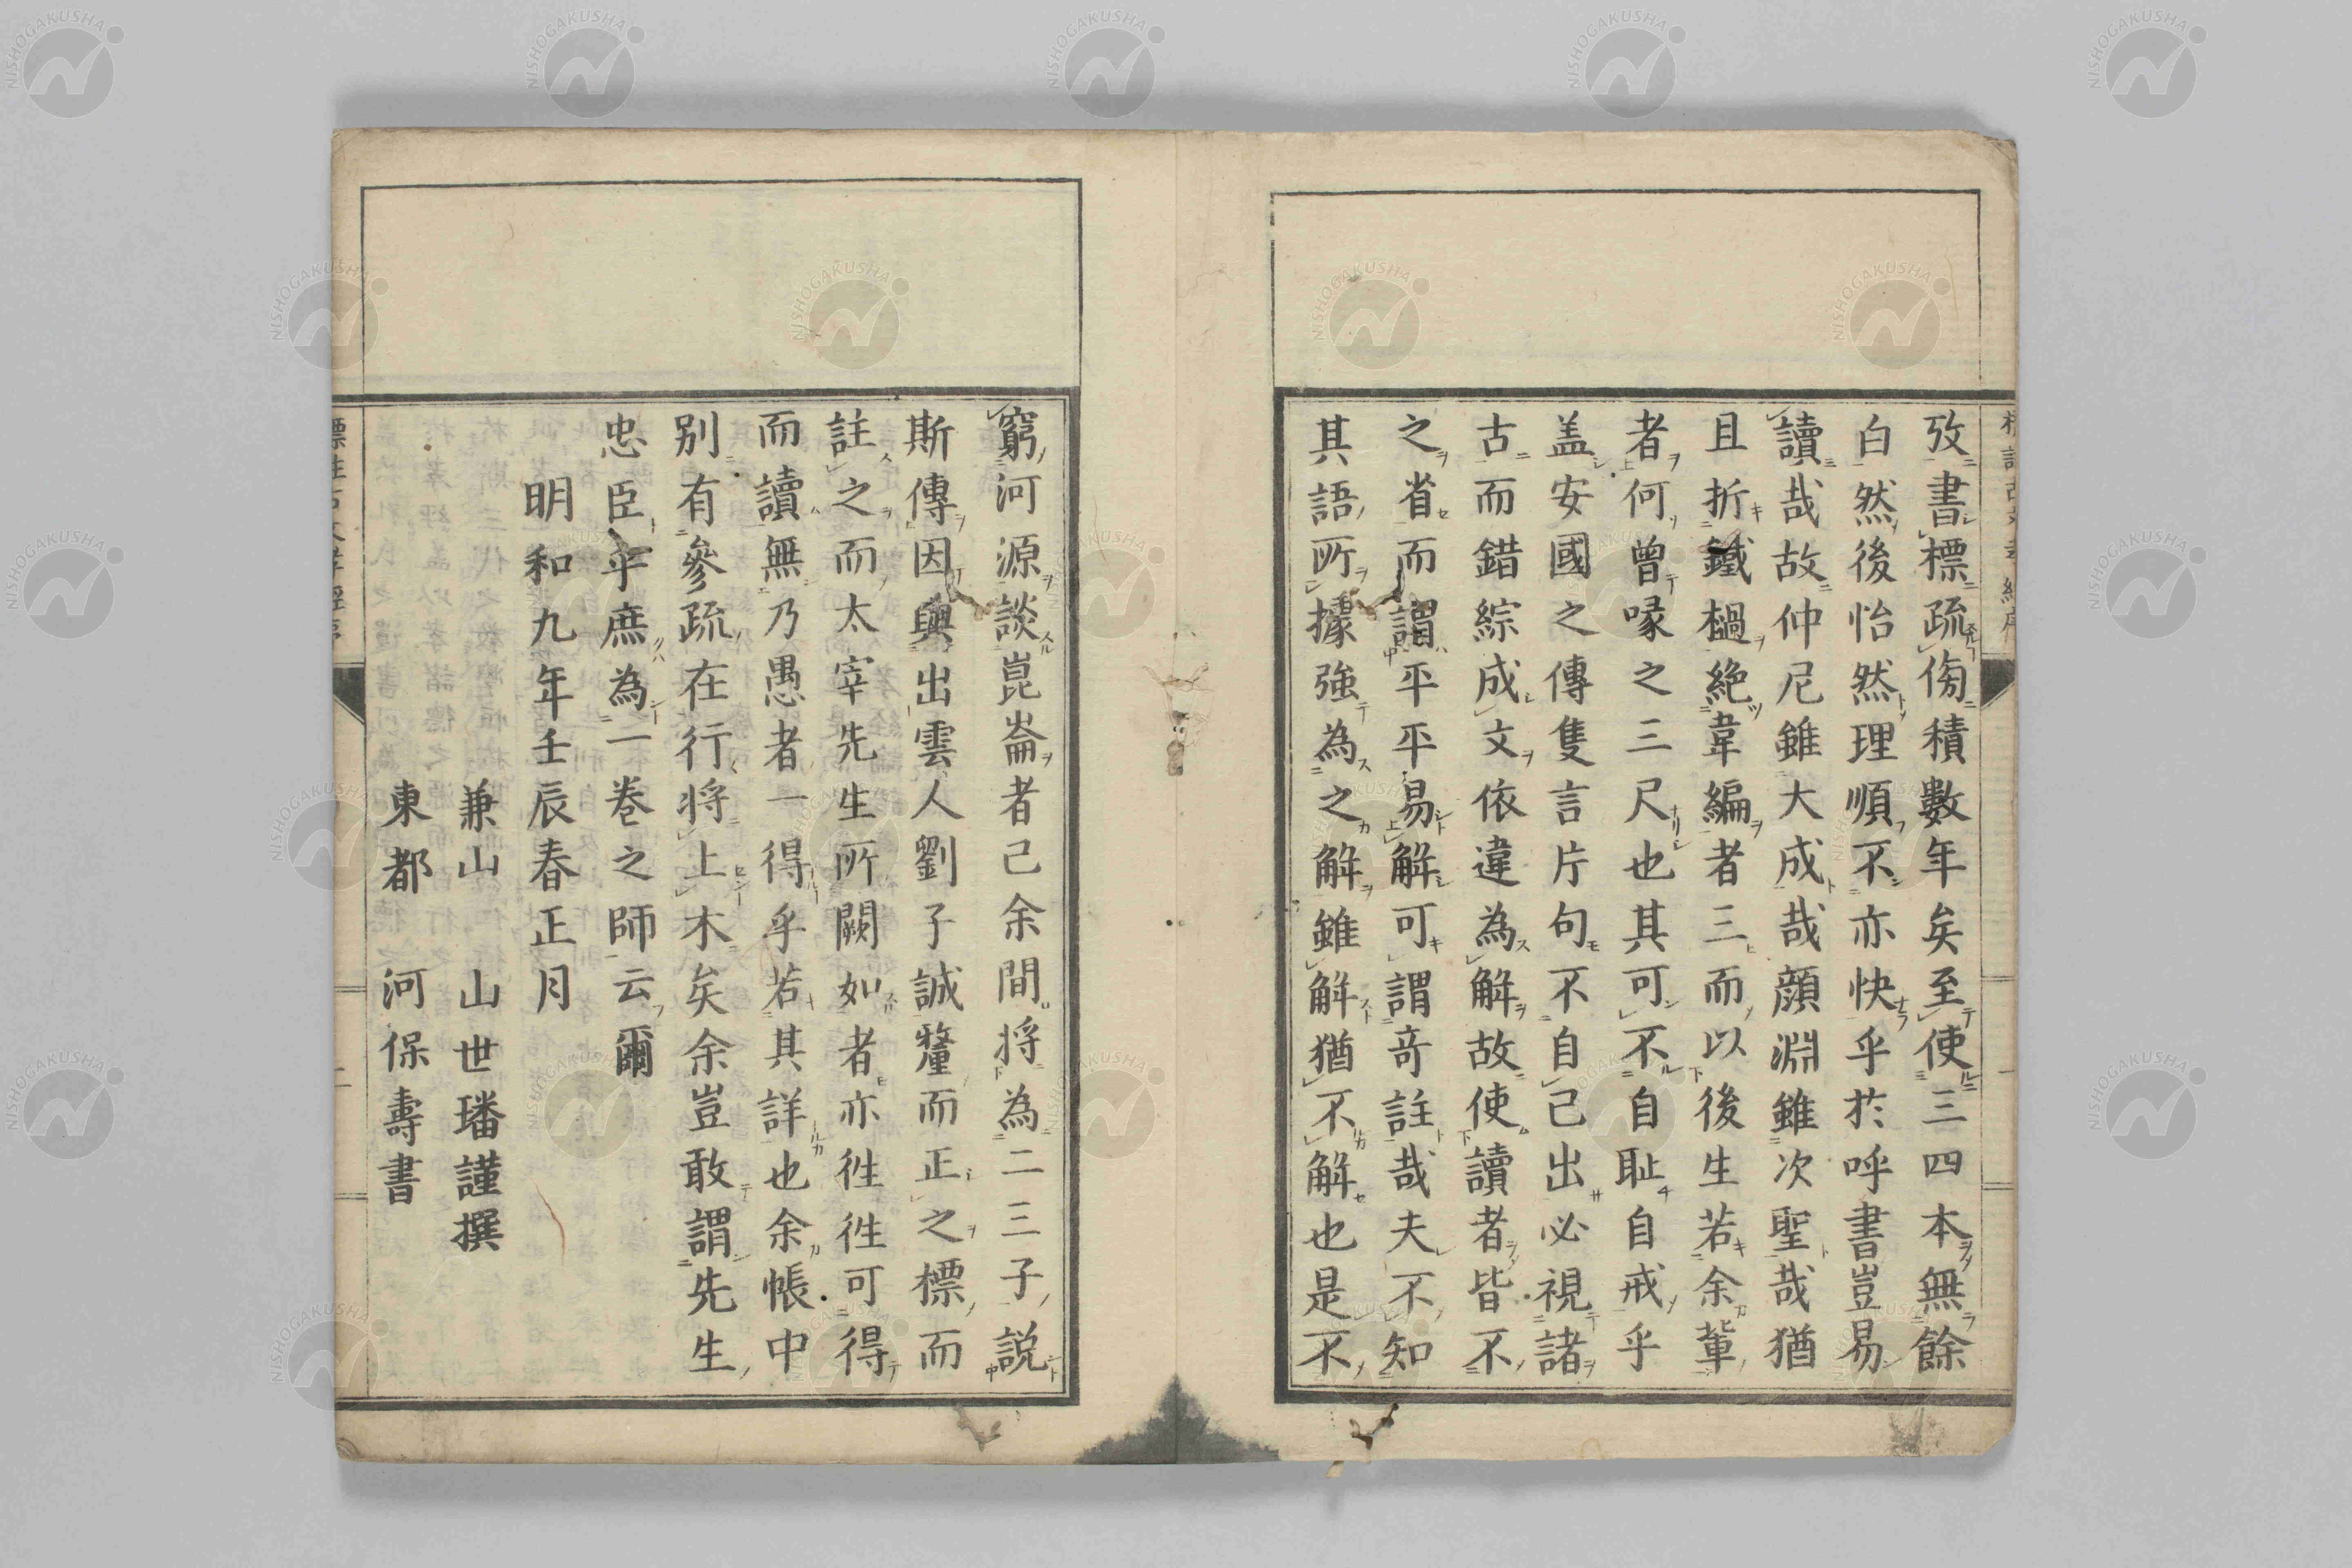 攷書標疏傍積數年矣至使三四本無餘
白然後怡然理順不亦快乎於呼書豈易
讀哉故仲尼雖大成哉顔淵雖次聖哉猶
且折鐵檛絶韋編者三而以後生若余輩
者何曾喙之三尺也其可不自耻自戒乎
盖安國之傳隻言片句不自己出必視諸
古而錯綜成文依違為解故使讀者皆不
之省而謂平平易解可謂竒註哉夫不知
其語所據強為之解雖解猶不解也是不
窮河源談崑崙者已余間將為二三子説
斯傳因與出雲人劉子誠釐而正之標而
註之而太宰先生所闕如者亦徃徃可得
而讀無乃愚者一得乎若其詳也余帳中
别有參疏在行将上木矣余豈敢謂先生
忠臣乎庶為一巻之師云爾
明和九年壬辰春正月
兼山 山世璠謹撰
東都 河保壽書
標註古文孝經序
二
NISHOGAKUSHA